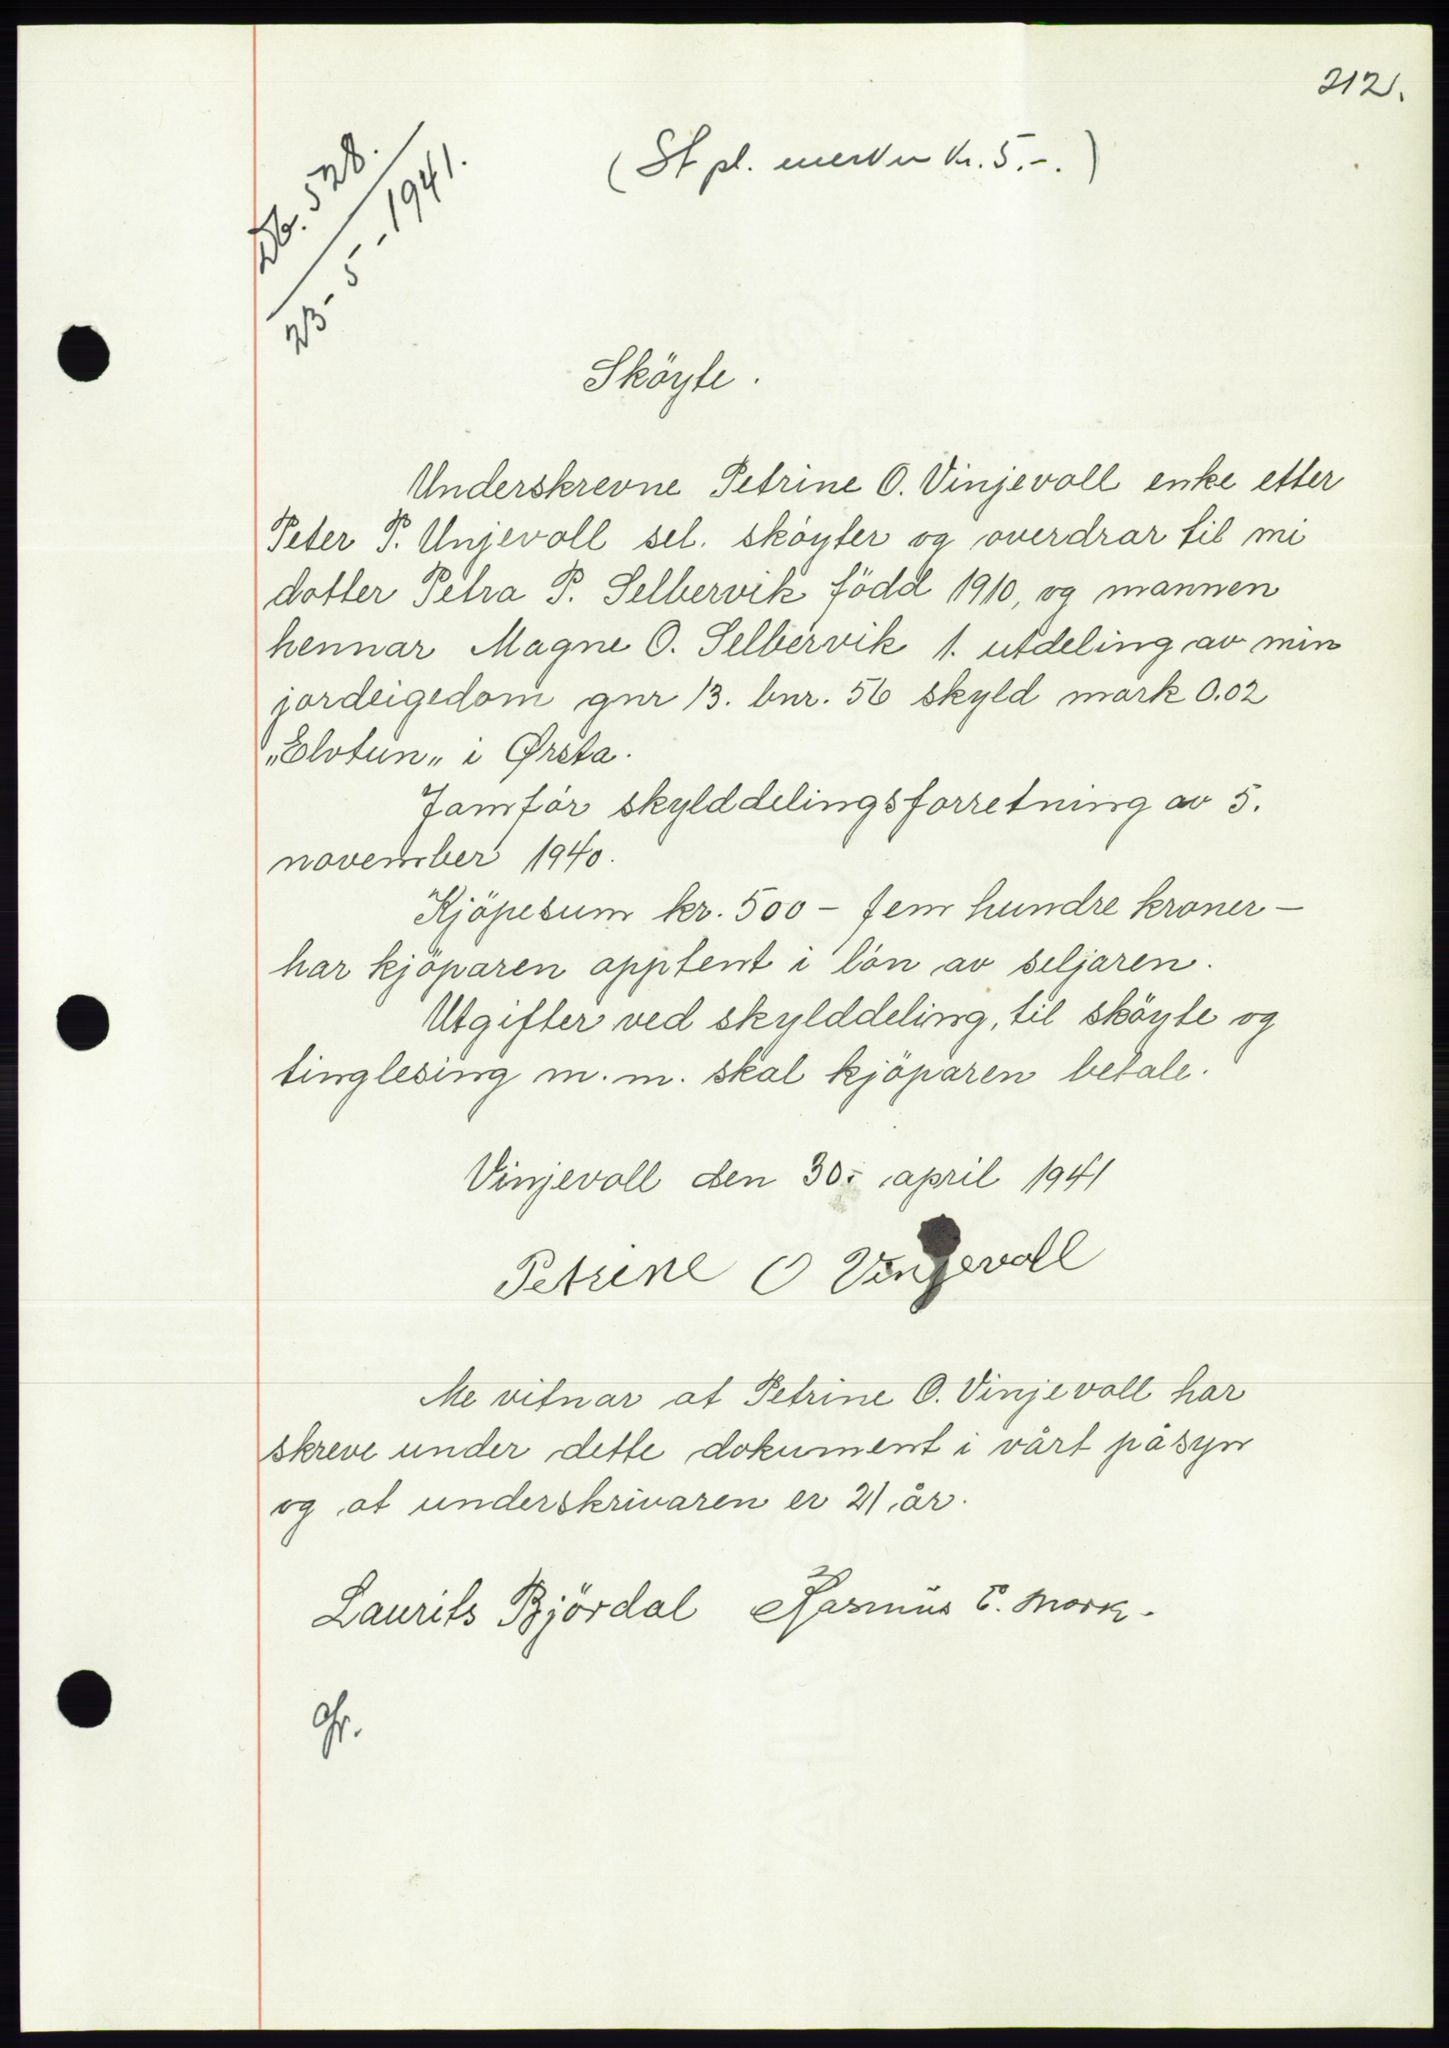 212.
Db. 528.
23-5-1941.
(Stpl. merker kr. 5.-.)
Sköyte.
Underskrevne Petrine O. Vinjevoll enke etter
Peter P. Unjevoll sel. sköyter og overdrar til mi
dotter Petra P. Selbervik född 1910, og mannen
hennar Magne O. Selbervik 1. utdeling av min
jordeigedom gnr 13. bnr. 56 skyld mark 0.02
„Elvtun„ i Ørsta.
Jamför skylddelingsforretning av 5.
november 1940.
Kjöpesum kr. 500 - fem hundre kroner -
har kjöparen opptent i lön av seljaren.
Utgifter ved skylddeling, til sköyte og
tinglesing m.m. skal kjöparen betale.
Vinjevoll den 30.- april 1941
Petrine O Vinjevoll
Me vitnar at Petrine O. Vinjevoll har
skreve under dette dokument i vårt påsyn
og at underskrivaren er 21 år.
Laurits Björdal Rasmus E. Mork.